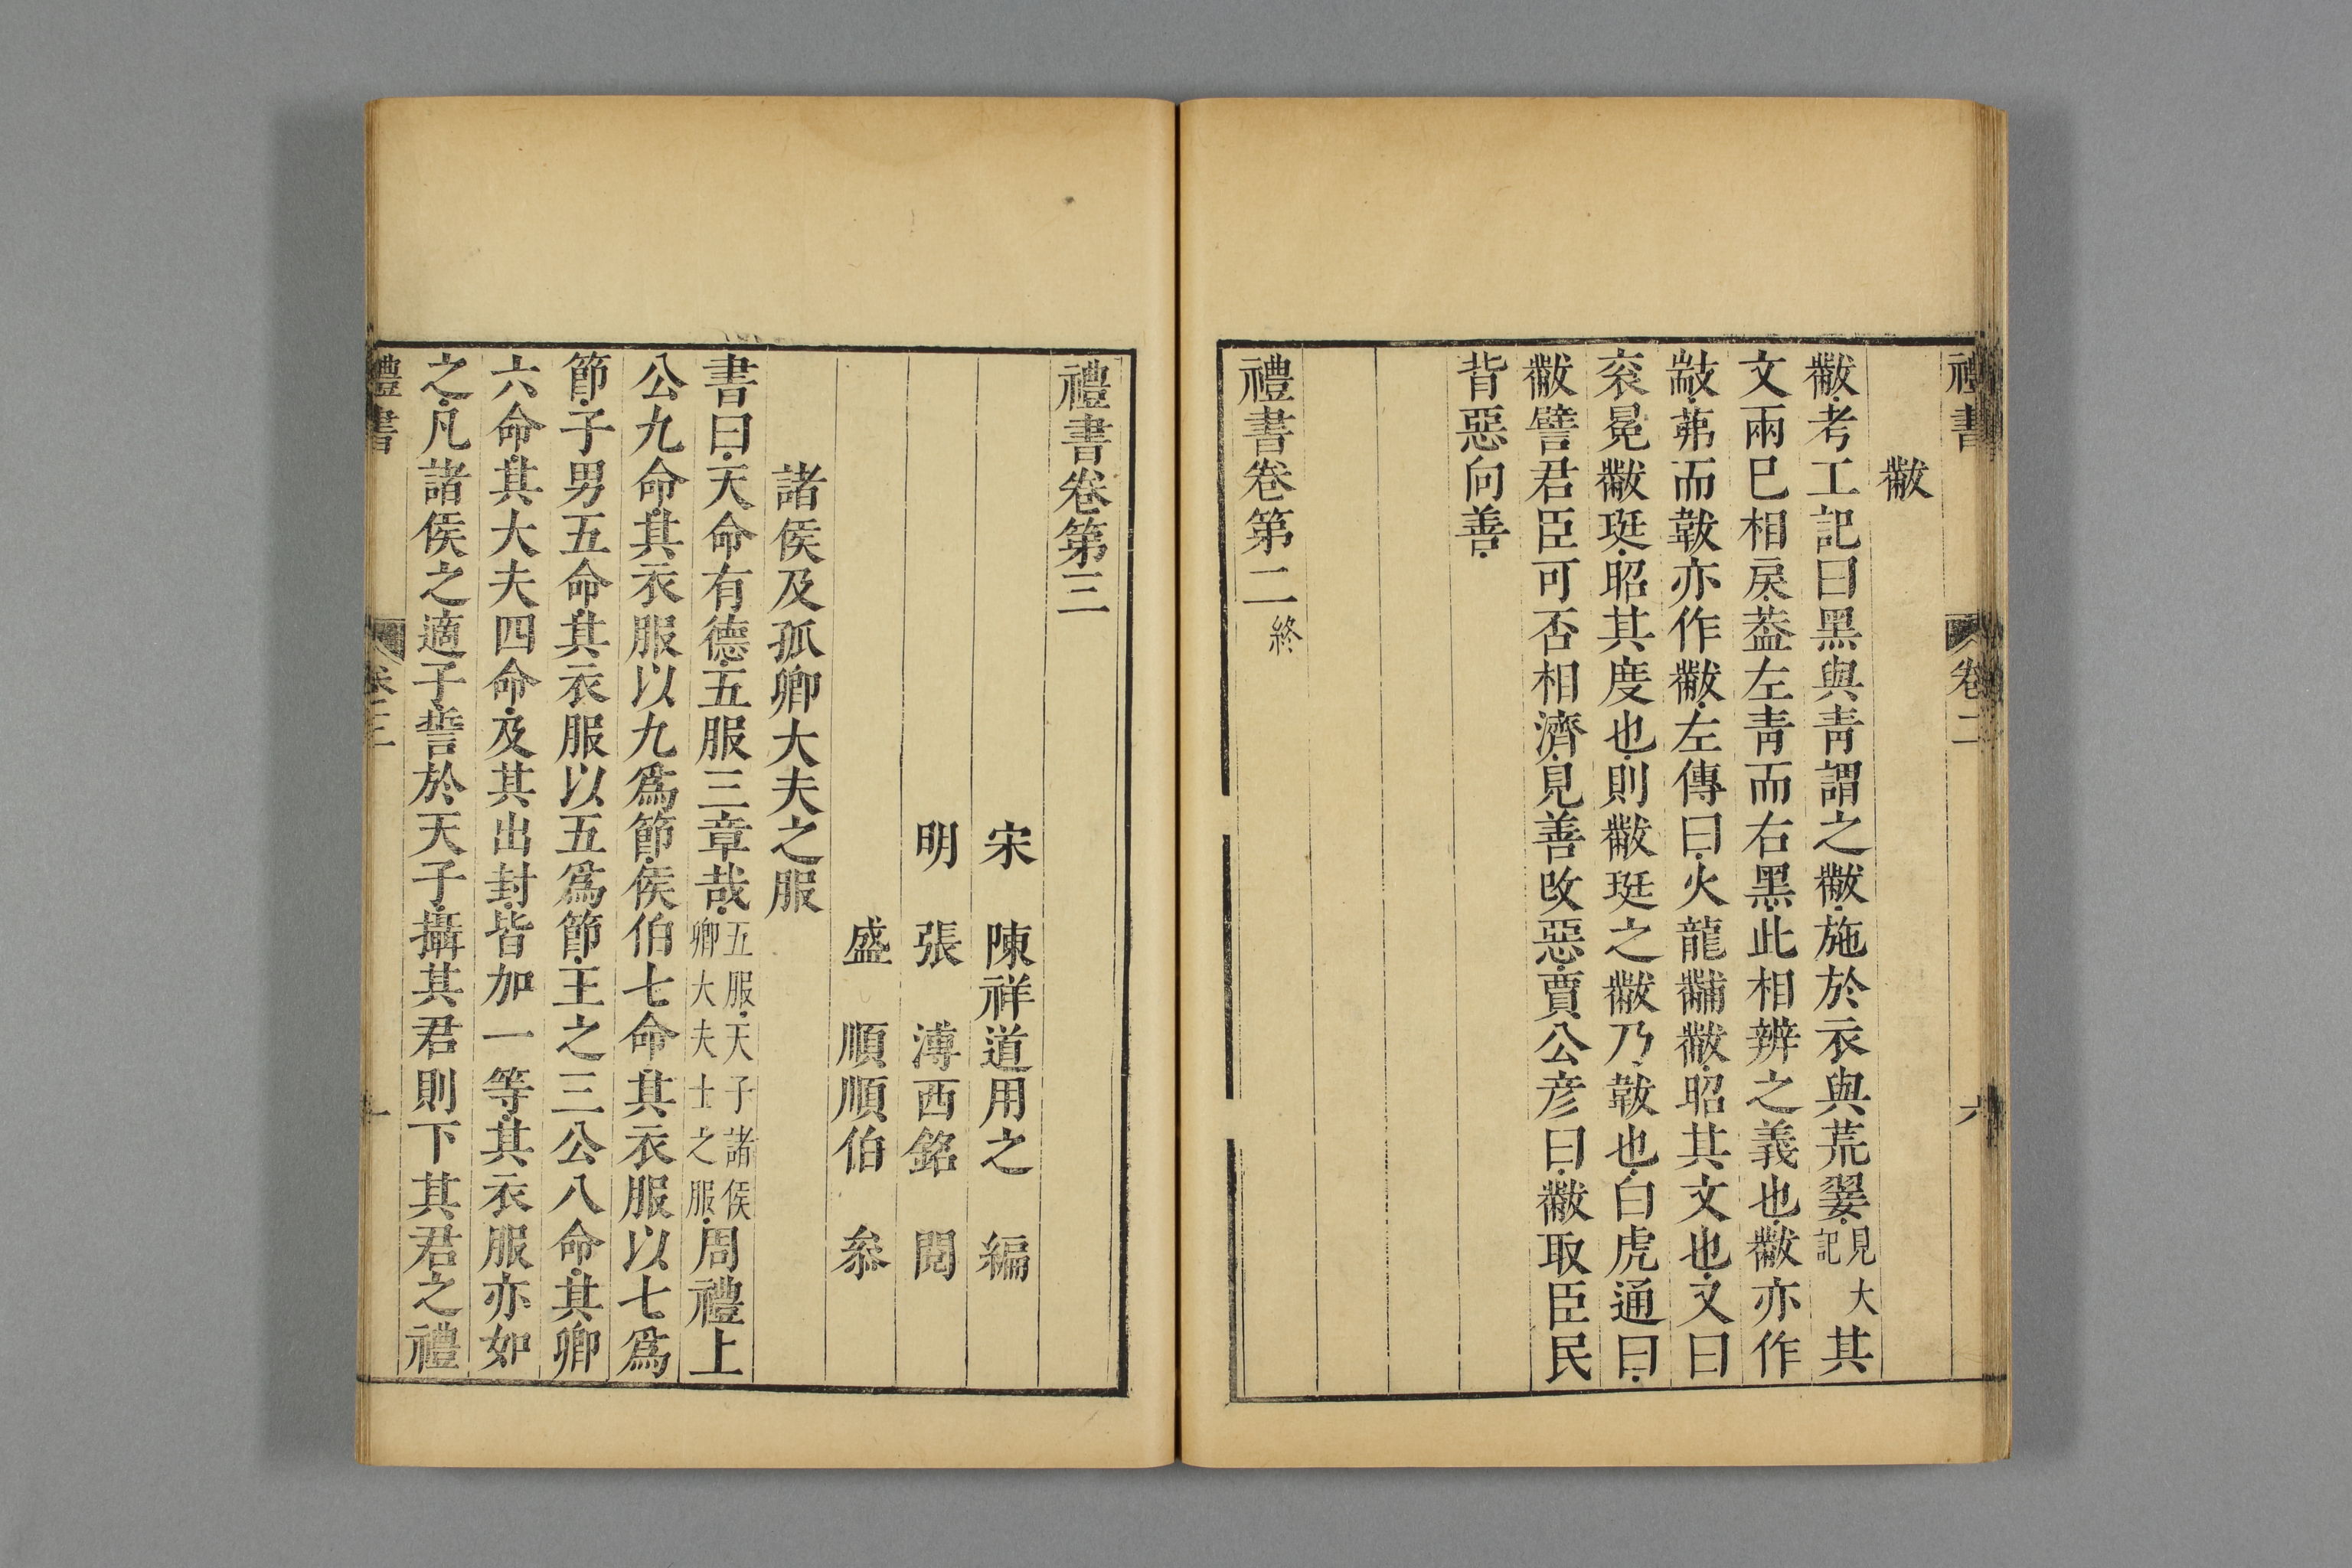 禮書 卷二 六
黻
黻考工記曰黑與青謂之黻施於衣與荒翣見大記其
文兩巳相戾葢左青而右黑此相辨之義也黻亦作
㡀茀而韍亦作黻左傳曰火龍黼黻昭其文也又曰
衮冕黻珽昭其度也則黻珽之黻乃韍也白虎通曰
黻譬君臣可否相濟見善改惡賈公彥曰黻取臣民
背惡向善
禮書卷第二終
禮書卷第三
宋 陳祥道用之 編
明 張 溥西銘 閱
盛 順順伯 叅
諸侯及孤卿大夫之服
書曰天命有德五服三章哉五服天子諸侯卿大夫士之服周禮上
公九命其衣服以九爲節侯伯七命其衣服以七爲
節子男五命其衣服以五爲節王之三公八命其卿
六命其大夫四命及其出封皆加一等其衣服亦如
之凡諸侯之適子誓於天子攝其君則下其君之禮
禮書 卷三 一